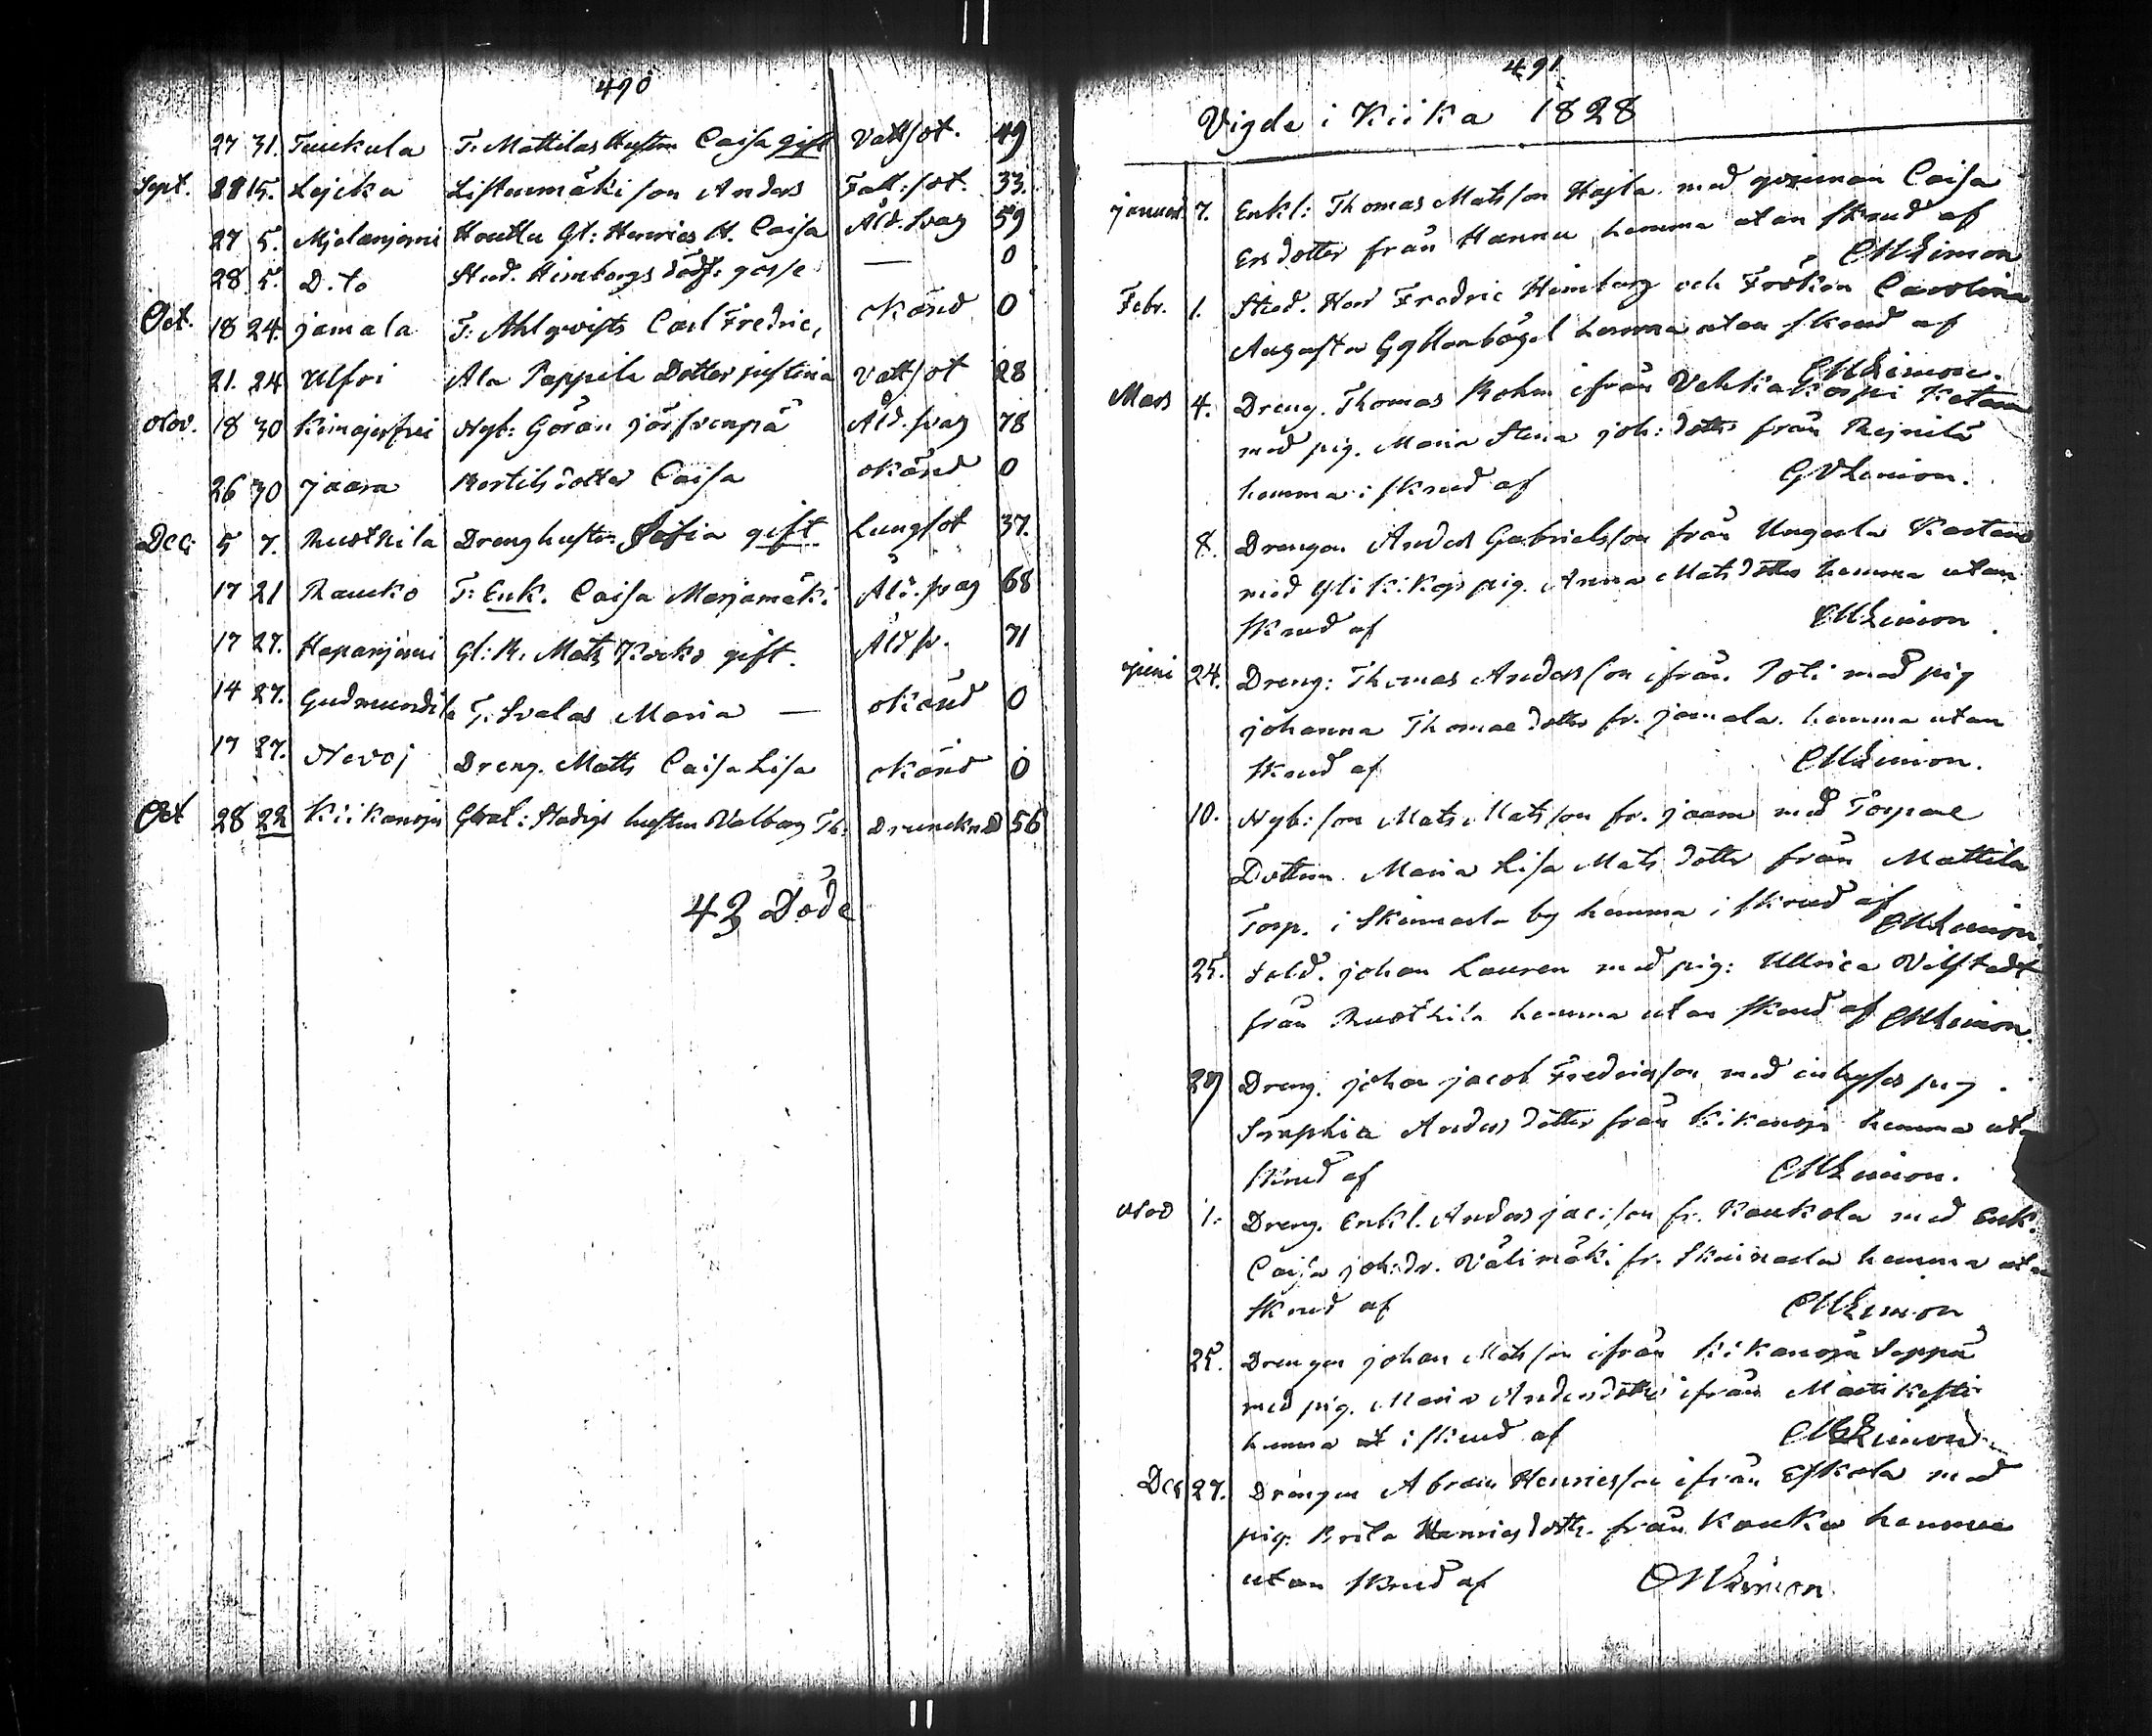 490
27 31. Tuukula T. Mattilas Hustru Caisa gift Vattsot. 49
Sept. 28 15. Lejcka Listenmäki son Anders Fatt: sot. 33.
27 5. Mjelanjerni Gl: Henrics H. Caisa Åld. svag 59
28. 5. D. to Stud. Heimbergs dödf: gosse — 0
Oct. 18 24. jamala T: Ahlqvists Carl Fredric, okänd 0
21. 24 Ulfvi Ala Pappila Dotter justina Vattsot 28
Nov. 18 30 Nyb: Göran järfvenpä Åld. svag 78
26 30 jaara Bertils dotter Caisa okänd 0
Dec. 5 7. Ruothila Dreng hustru Sofia gift Lungsot 37.
17 21 Raucko T: Enk. Caisa Marjamäki Åld. svag 68
17 27. Haparjerni Gl: R. Mats Kocko gift. Åld sv. 71
14 27. Gudmundila T. Svalas Maria — okänd 0
17 27. Nevoj Dreng. Matts Caisa Lisa okänd 0
Oct 28 22 Kiikanoja Stadigs hustru Valborg Th: Drunknad 56
43 Döde
491
Vigde i Kiika 1828
januar. 7. Enkl: Thomas Matsson Hojla med Caisa
Ersdotter från Hannu hemma utan skrud af
CMLimon
Febr. 1. Stud. Herr Fredric Heimberg och Fröken Carolina
Augusta Gyllenbögel hemma utan skrud af
CMLimon.
Mars 4. Dreng. Thomas Bohm ifrån Vehkakorpi
med pig. Maria Stina joh: dotter från Rejnilä
hemma i skrud af CMLimon.
8. Drengen Anders Gabrielsson från Ungarla
med pig. Anna Mats dotter hemma utan
skrud af CMLimon
juni 24. Dreng: Thomas Andersson ifrån Poti med pig
johanna Thomae dotter fr. jamala hemma utan
skrud af CMLimon.
10. Nyb: son Mats Matsson fr. jaara med Torpare
Dottren Maria Lisa Mats dotter från Mattila
Torp. i Skinnarla by hemma i skrud af CMLimon
25. Sold. johan Lauren med pig: Ullrica Vilstedt
från Ruothila hemma utan skrud af CMLimon.
29 Dreng. johan jacob Fredricsson med inhyses pig
Sophia Anders dotter från Kikanoja hemma utan
skrud af CMLimon.
Nov 1. Dreng. Enkl. Anders jac:son fr. Kaukola med Enk.
Caisa joh:dr. Välimäki fr. Skinnarla hemma utan
skrud af CMLimon
25. Drengen johan Matsson ifrån Kikanoja Seppä
med pig. Maria Andersdotter ifrån
hemma i skrud af CMLimon
Dec 27. Drengen Abram Henricsson ifrån Eskola med
pig. Brita Henricsdotter från Kauko hemma
utan skrud af CMLimon